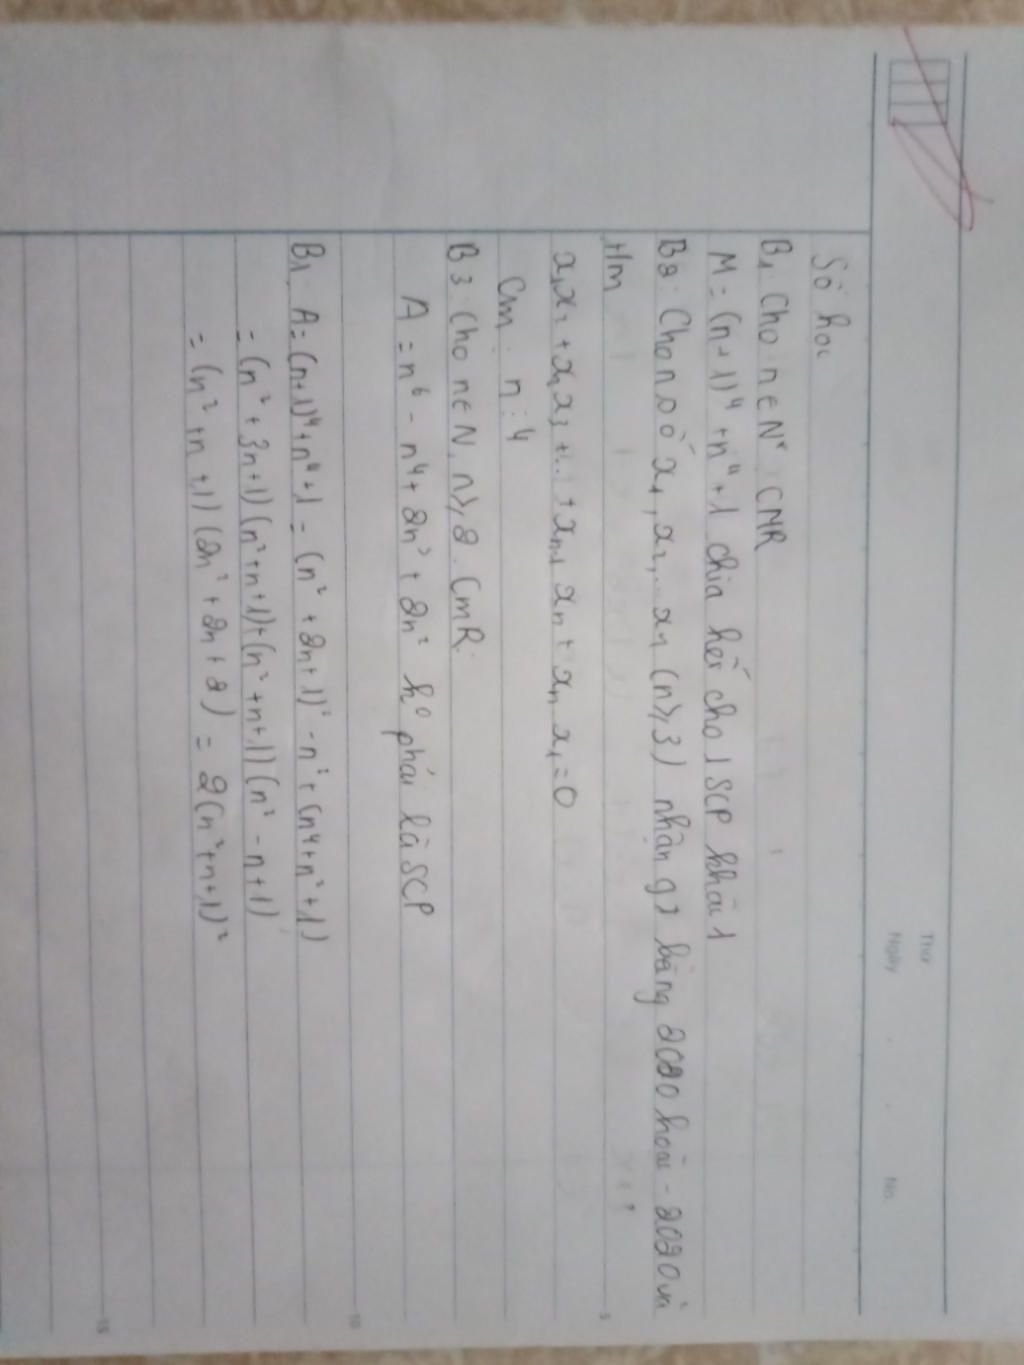 Thứ
Ngày . . No.
Số học
B1: Cho n ∈ N* CMR
M = (n+1)⁴ + n⁴ + 1 chia hết cho 1 SCP khác 1
B2: Cho n số x₁, x₂,... xn (n ≥ 3) nhận gt bằng 2020 hoặc - 2020 và
t/m
x₁x₂ + x₂x₃ + ... + xn-1 xn + xn x₁ = 0
Cm: n ⋮ 4
B3: Cho n ∈ N, n ≥ 2. CmR:
A = n⁶ - n⁴ + 2n³ + 2n² k⁰ phải là SCP
B1: A = (n+1)⁴ + n⁴ + 1 = (n² + 2n + 1)² - n² + (n⁴ + n² + 1)
= (n² + 3n + 1) (n² + n + 1) + (n² + n + 1) (n² - n + 1)
= (n² + n + 1) (2n² + 2n + 2) = 2(n² + n + 1)²
5
10
15